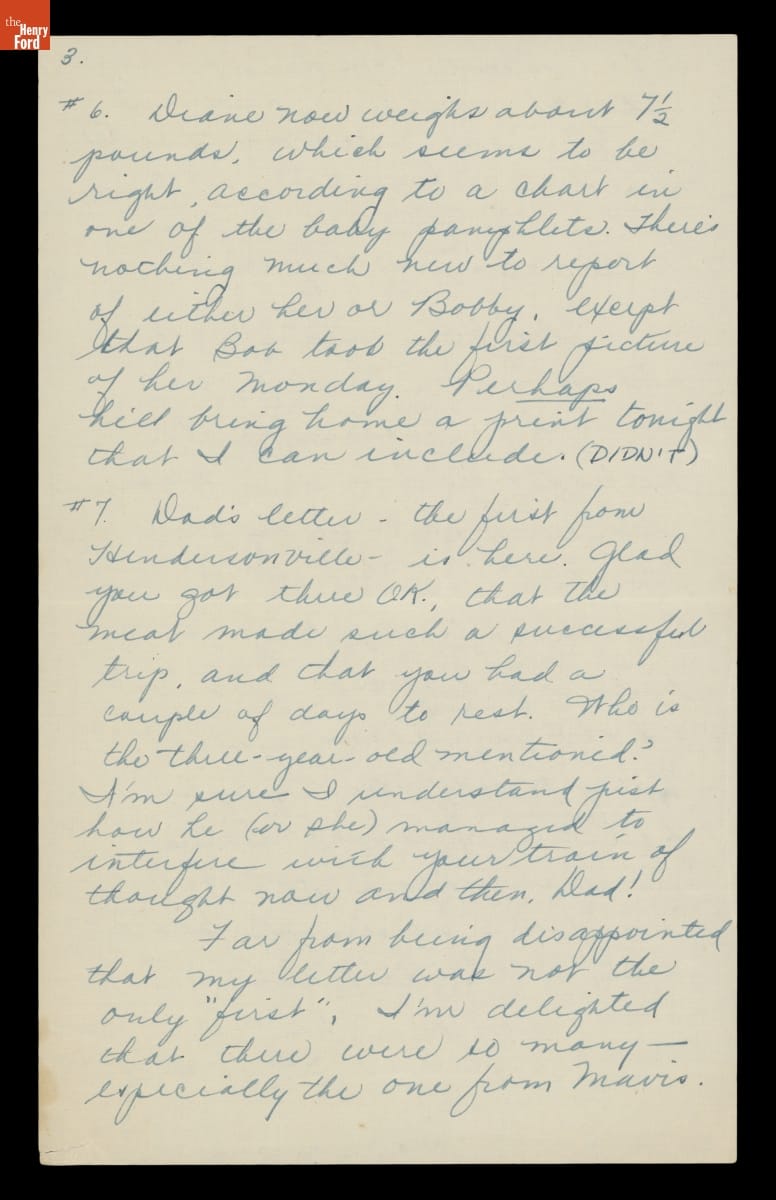 the
Henry
Ford
3.
#6. Diane now weighs about 7½
pounds, which seems to be
right, according to a chart in
one of the baby pamphlets. There's
nothing much new to report
of either her or Bobby, except
that Bob took the first picture
of her Monday. Perhaps
he'll bring home a print tonight
that I can include. (DIDN'T)
#7. Dad's letter - the first from
Hendersonville - is here. Glad
you got there OK., that the
meat made such a successful
trip, and that you had a
couple of days to rest. Who is
the three-year-old mentioned?
I'm sure I understand just
how he (or she) managed to
interfere with your train of
thought now and then, Dad!
Far from being disappointed
that my letter was not the
only "first", I'm delighted
that there were so many —
especially the one from Mavis.